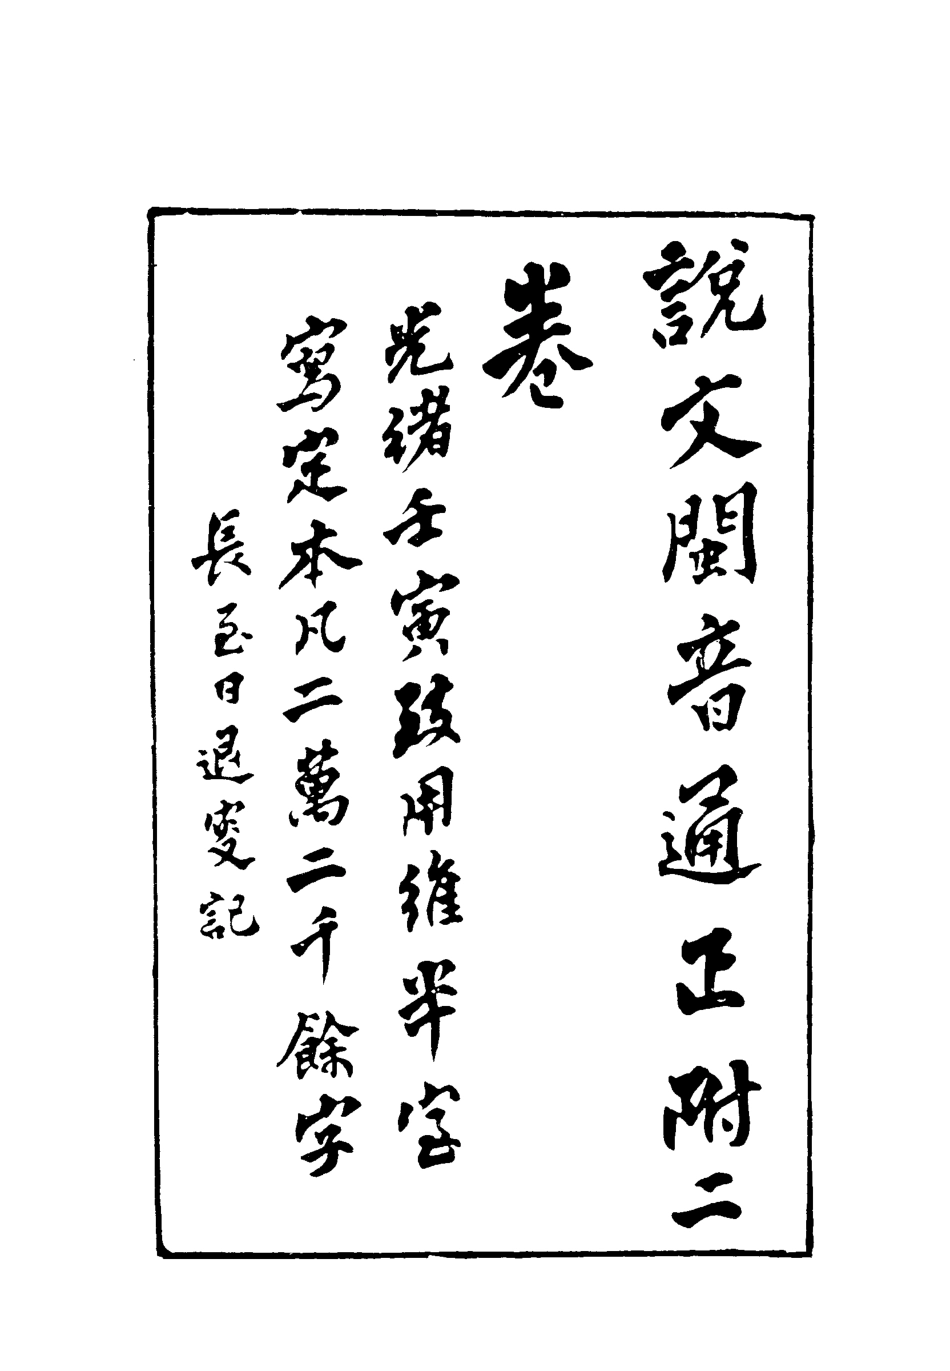 說文閩音通正附二
卷
光緒壬寅致用維半室
寫定本凡二萬二千餘字
長至日退叟記